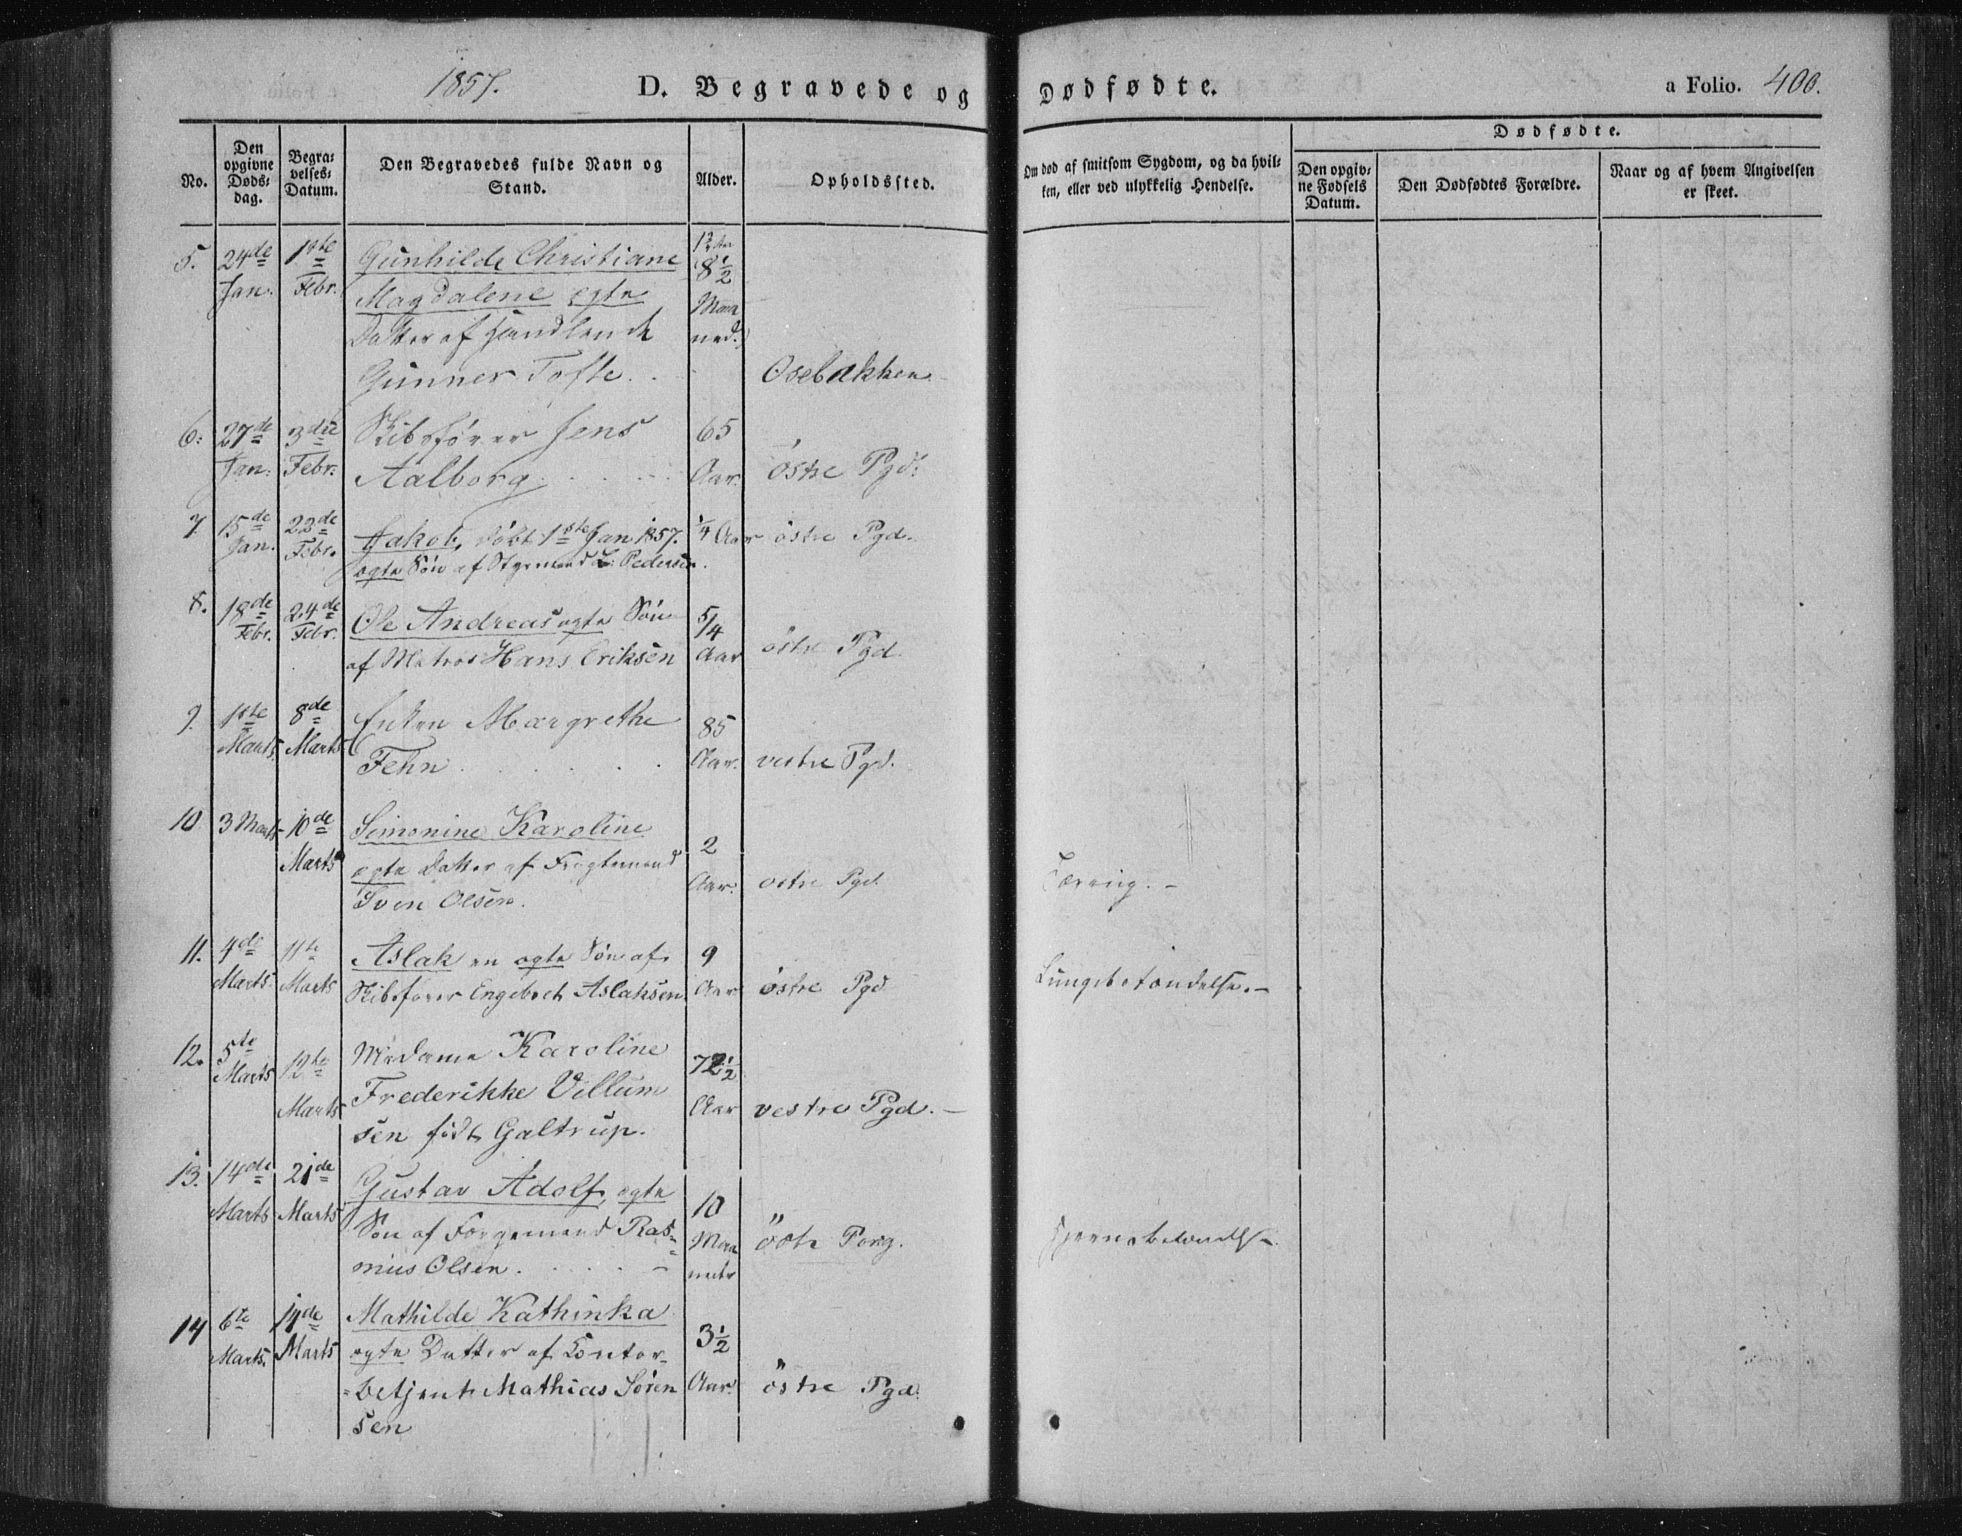 1857. D. Begravede og Dødfødte. a Folio. 400.
No.
Den opgivne Døds-dag.
Begra-velses-Datum.
Den Begravedes fulde Navn og Stand.
Alder.
Opholdssted.
Om død af smitsom Sygdom, og da hvil-ken, eller ved ulykkelig Hendelse.
Dødfødte.
Den opgiv-ne Fødsels Datum.
Den Dødfødtes Forældre.
Naar og af hvem Angivelsen er skeet.
5. 24de 1ste Gunhilde Christiane 8½
Jan. Febr. Magdalene ægte Maa
Datter af Handlende ned.
Gunner Tofte. Osebakken
6. 27de 3die Skibsfører Jens 65
Jan. Febr. Aalborg Aar. östre Pgd.
7. 15de 22de Jakob, døbt 1ste Jan 1857. ¼ Aar östre Pgd.
Jan. Febr. ægte Søn af Styrmand L. Pedersen.
8. 18de 24de Ole Andreas ægte Søn 5/4
Febr. Febr. af Matros Hans Eriksen Aar östre Pgd.
9. 1ste 8de Enken Margrethe 85
Marts. Marts Fehn Aar. vestre Pgd.
10 3 Marts 10de Simonine Karoline 2
Marts ægte Datter af Fragtemand Aar. östre Pgd. Tæring.
Sven Olsen.
11. 4de 11te Aslak en ægte Søn af 9
Marts. Marts Skibsfører Engebret Aslaksen Aar östre Pgd Lungebetændelse.
12. 5te 12te Madame Karoline 72½
Marts Marts Frederikke Villum Aar vestre Pgd.
sen født Galtrup.
13. 14de 21de Gustav Adolf, ægte 10
Marts Marts Søn af Færgemand Ras- Maa östre Porsg. Hjernebetændelse
mus Olsen. neder
14 6te 14de Mathilde Kathinka 3½
Marts. Marts ægte Datter af Contor-
betjent Mathias Sören Aar. östre Pgd.
sen